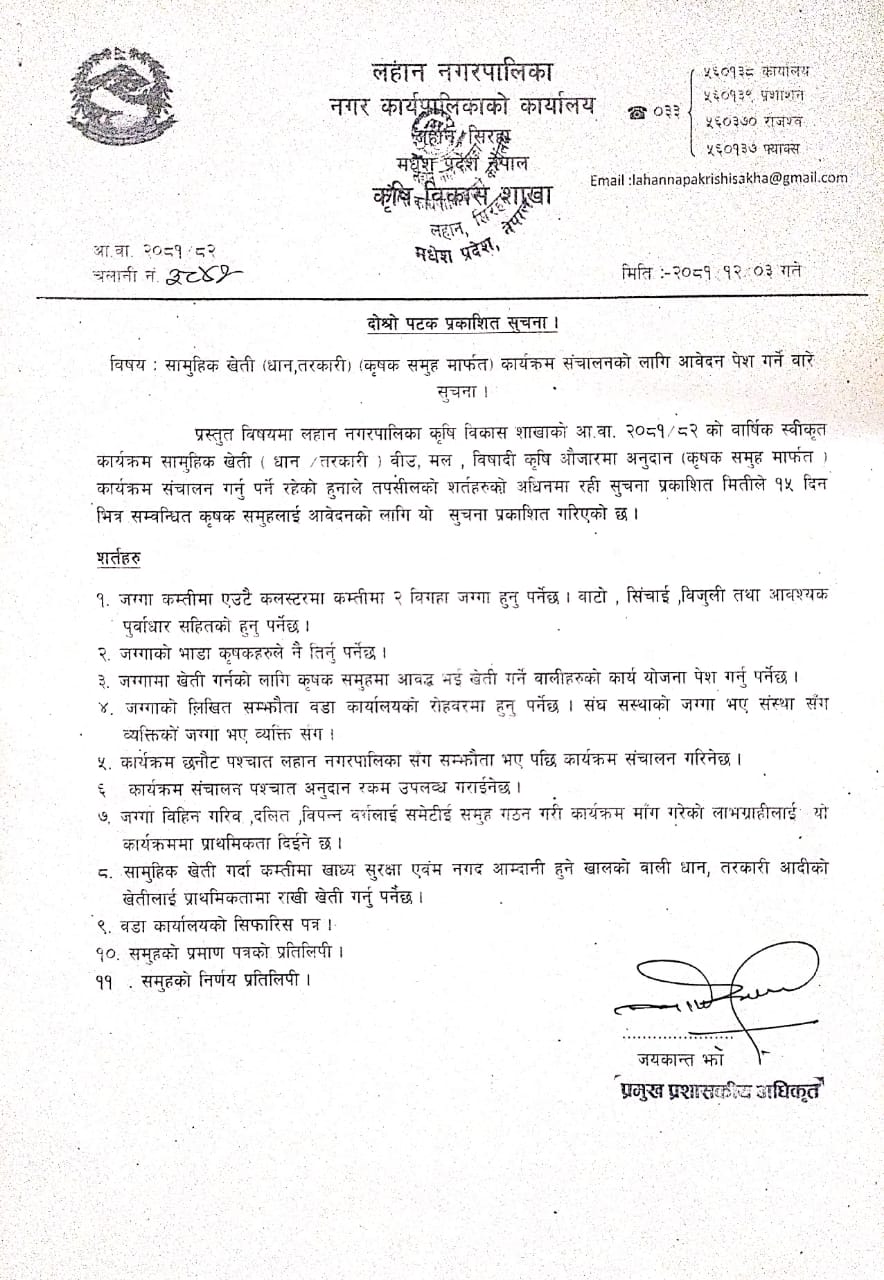 लहान नगरपालिका
नगर कार्यपालिकाको कार्यालय
लहान, सिरहा
मधेश प्रदेश नेपाल
कृषि विकास शाखा
लहान, सिरहा
मधेश प्रदेश, नेपाल
☎ ०३३
५६०१३८ कार्यालय
५६०१३९ प्रशाशन
५६०३७० राजश्व
५६०१३७ फ्याक्स
Email :lahannapakrishisakha@gmail.com
आ.वा. २०८१/८२
चलानी नं.
मिति :-२०८१/१२/०३ गते
दोश्रो पटक प्रकाशित सुचना ।
विषय : सामुहिक खेती (धान,तरकारी) (कृषक समुह मार्फत) कार्यक्रम संचालनको लागि आवेदन पेश गर्ने वारे
सुचना ।
प्रस्तुत विषयमा लहान नगरपालिका कृषि विकास शाखाको आ.वा. २०८१/८२ को वार्षिक स्वीकृत
कार्यक्रम सामुहिक खेती ( धान /तरकारी ) वीउ, मल , विषादी कृषि औजारमा अनुदान (कृषक समुह मार्फत )
कार्यक्रम संचालन गर्नु पर्ने रहेको हुनाले तपसीलको शर्तहरुको अधिनमा रही सुचना प्रकाशित मितीले १५ दिन
भित्र सम्वन्धित कृषक समुहलाई आवेदनको लागि यो सुचना प्रकाशित गरिएको छ ।
शर्तहरु
१. जग्गा कम्तीमा एउटै कलस्टरमा कम्तीमा २ विगहा जग्गा हुनु पर्नेछ । वाटो , सिंचाई ,विजुली तथा आवश्यक
पुर्वाधार सहितको हुनु पर्नेछ ।
२. जग्गाको भाडा कृषकहरुले नै तिर्नु पर्नेछ ।
३. जग्गामा खेती गर्नको लागि कृषक समुहमा आवद्ध भई खेती गर्ने वालीहरुको कार्य योजना पेश गर्नु पर्नेछ ।
४. जग्गाको लिखित सम्झौता वडा कार्यालयको रोहवरमा हुनु पर्नेछ । संघ सस्थाको जग्गा भए संस्था सँग
व्यक्तिकों जग्गा भए व्यक्ति संग ।
५. कार्यक्रम छनौट पश्चात लहान नगरपालिका संग सम्झौता भए पछि कार्यक्रम संचालन गरिनेछ ।
६ कार्यक्रम संचालन पश्चात अनुदान रकम उपलव्ध गराईनेछ ।
७. जग्गा विहिन गरिव ,दलित ,विपन्न वर्गलाई समेटीई समुह गठन गरी कार्यक्रम माँग गरेको लाभग्राहीलाई यो
कार्यक्रममा प्राथमिकता दिईने छ ।
८. सामुहिक खेती गर्दा कम्तीमा खाध्य सुरक्षा एवंम नगद आम्दानी हुने खालको वाली धान, तरकारी आदीको
खेतीलाई प्राथमिकतामा राखी खेती गर्नु पर्नेछ ।
९. वडा कार्यालयको सिफारिस पत्र ।
१०. समुहको प्रमाण पत्रको प्रतिलिपी ।
११ . समुहको निर्णय प्रतिलिपी ।
जयकान्त झा
प्रमुख प्रशासकीय अधिकृत